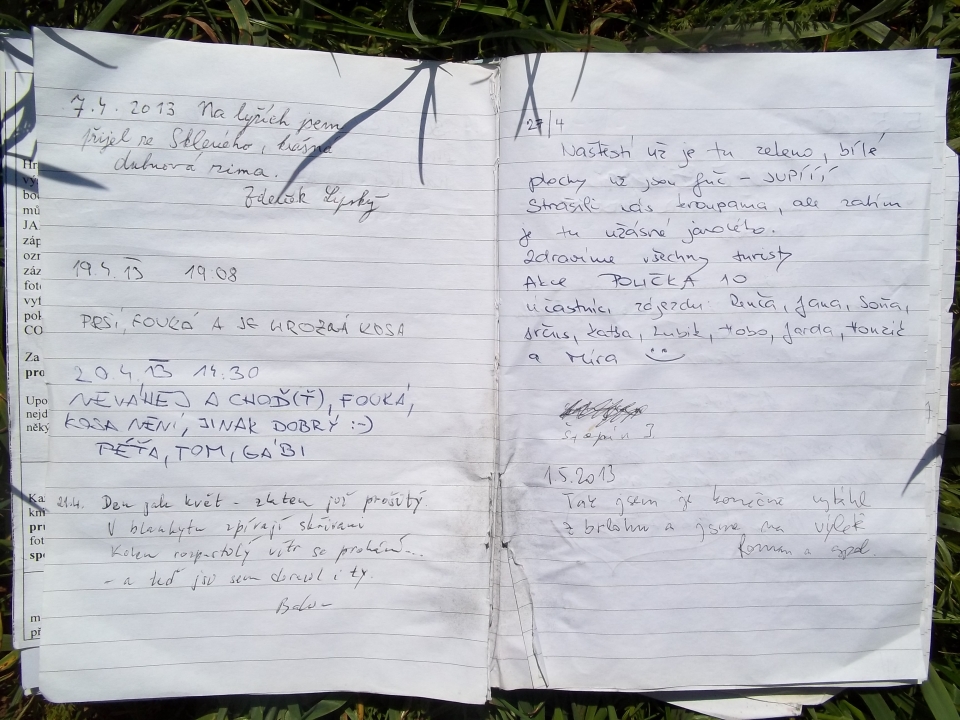 7.4. 2013 Na lyžích jsem
přijel ze Skleného, krásná
dubnová zima.
Zdeněk Lyský
19.4. 13 19 08
PRŠÍ, FOUKÁ A JE HROZNÁ KOSA
20.4. 13 14.30
NEVÁHEJ A CHOĎ(Ť), FOUKÁ,
KOSA NENÍ, JINAK DOBRÝ :-)
PÉŤA, TOM, GÁBI
21.4. Den jak květ - zlatem již prošitý.
V blankytu zpívají skřivani
Kolem rozpustilý vítr se prohání...
- a teď jsi sem dorazil i ty.
27/4
Naštěstí už je tu zeleno, bílé
plochy už jsou fuč - JUPÍÍÍ
Strašili nás kroupama, ale zatím
je tu úžasné jarového.
Zdravíme všechny turisty
Akce POLIČKA 10
Účastníci zájezdu: Renča, Jana, Soňa,
Katka, Lubik, Hobo, Jarda, Honzič
a Míra
Štěpán J
1.5.2013
Tak jsem je konečně vytáhl
z brlohu a jsme na výlet
Roman a spol.
Hr
vý
bo
mů
JA
záp
ozn
záz
foto
vyt
pok
CO
Za
pro
Upo
nejd
něky
Ka
km
pru
fot
spe
m
př